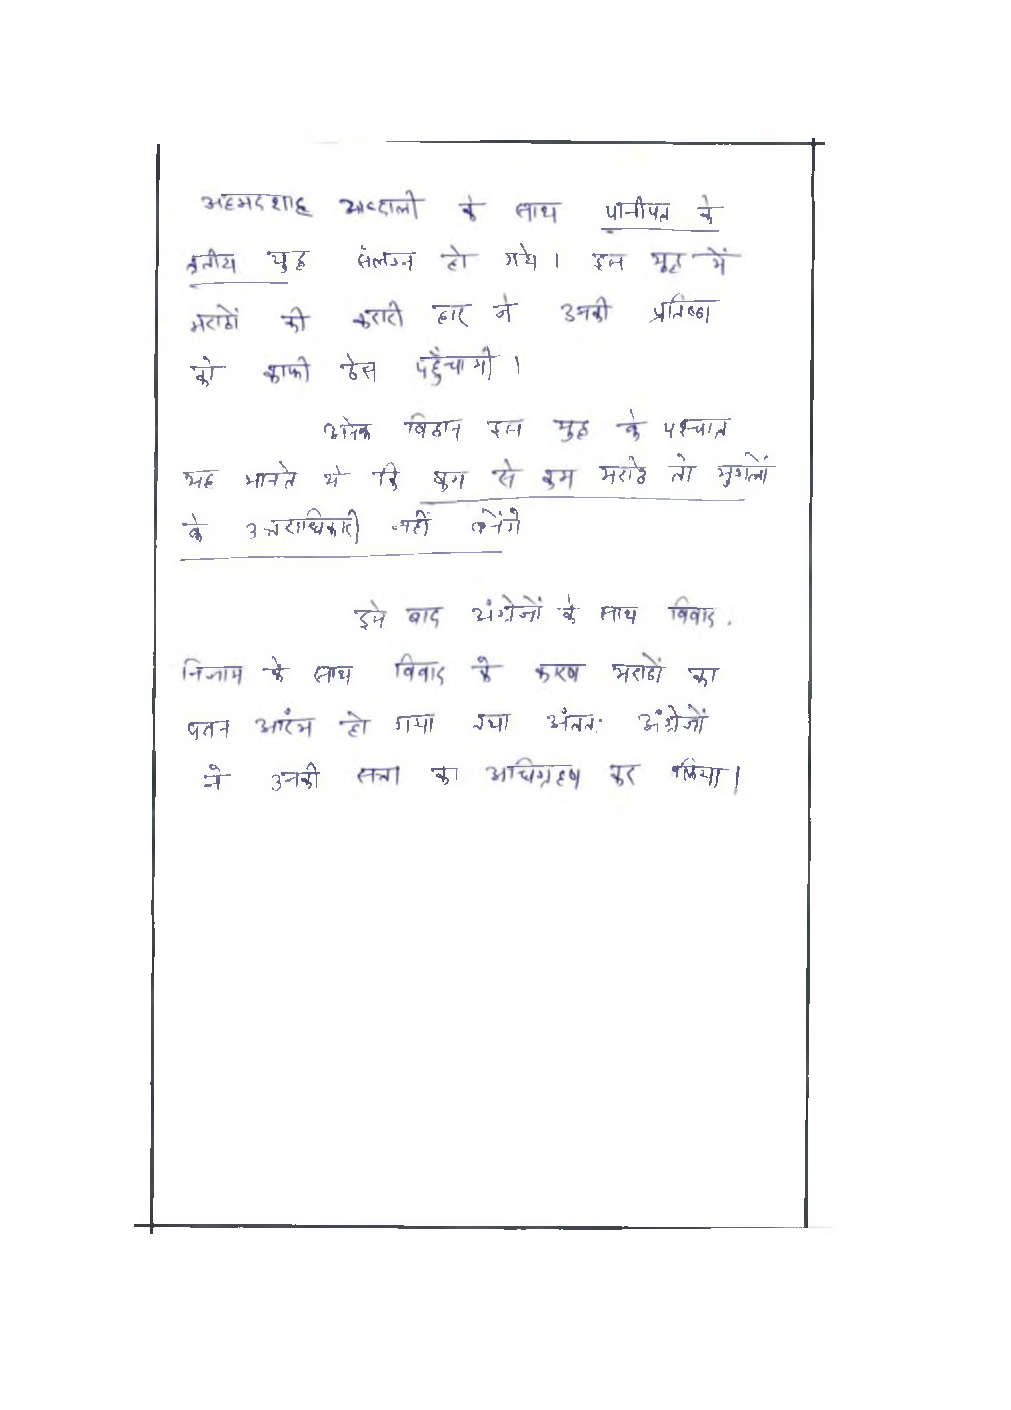 अहमदशाह अब्दाली के साथ पानीपत के
तृतीय युद्ध संलग्न हो गये। इस युद्ध में
मराठों की करारी हार ने उनकी प्रतिष्ठा
को काफी ठेस पहुँचायी।
अनेक विद्वान इस युद्ध के पश्चात
यह मानते थे कि कम से कम मराठे तो मुगलों
के उत्तराधिकारी नहीं बनेंगे
इसे बाद अंग्रेजों के साथ विवाद,
निजाम के साथ विवाद के कारण मराठों का
पतन आरंभ हो गया तथा अंततः अंग्रेजों
ने उनकी सत्ता का अधिग्रहण कर लिया।